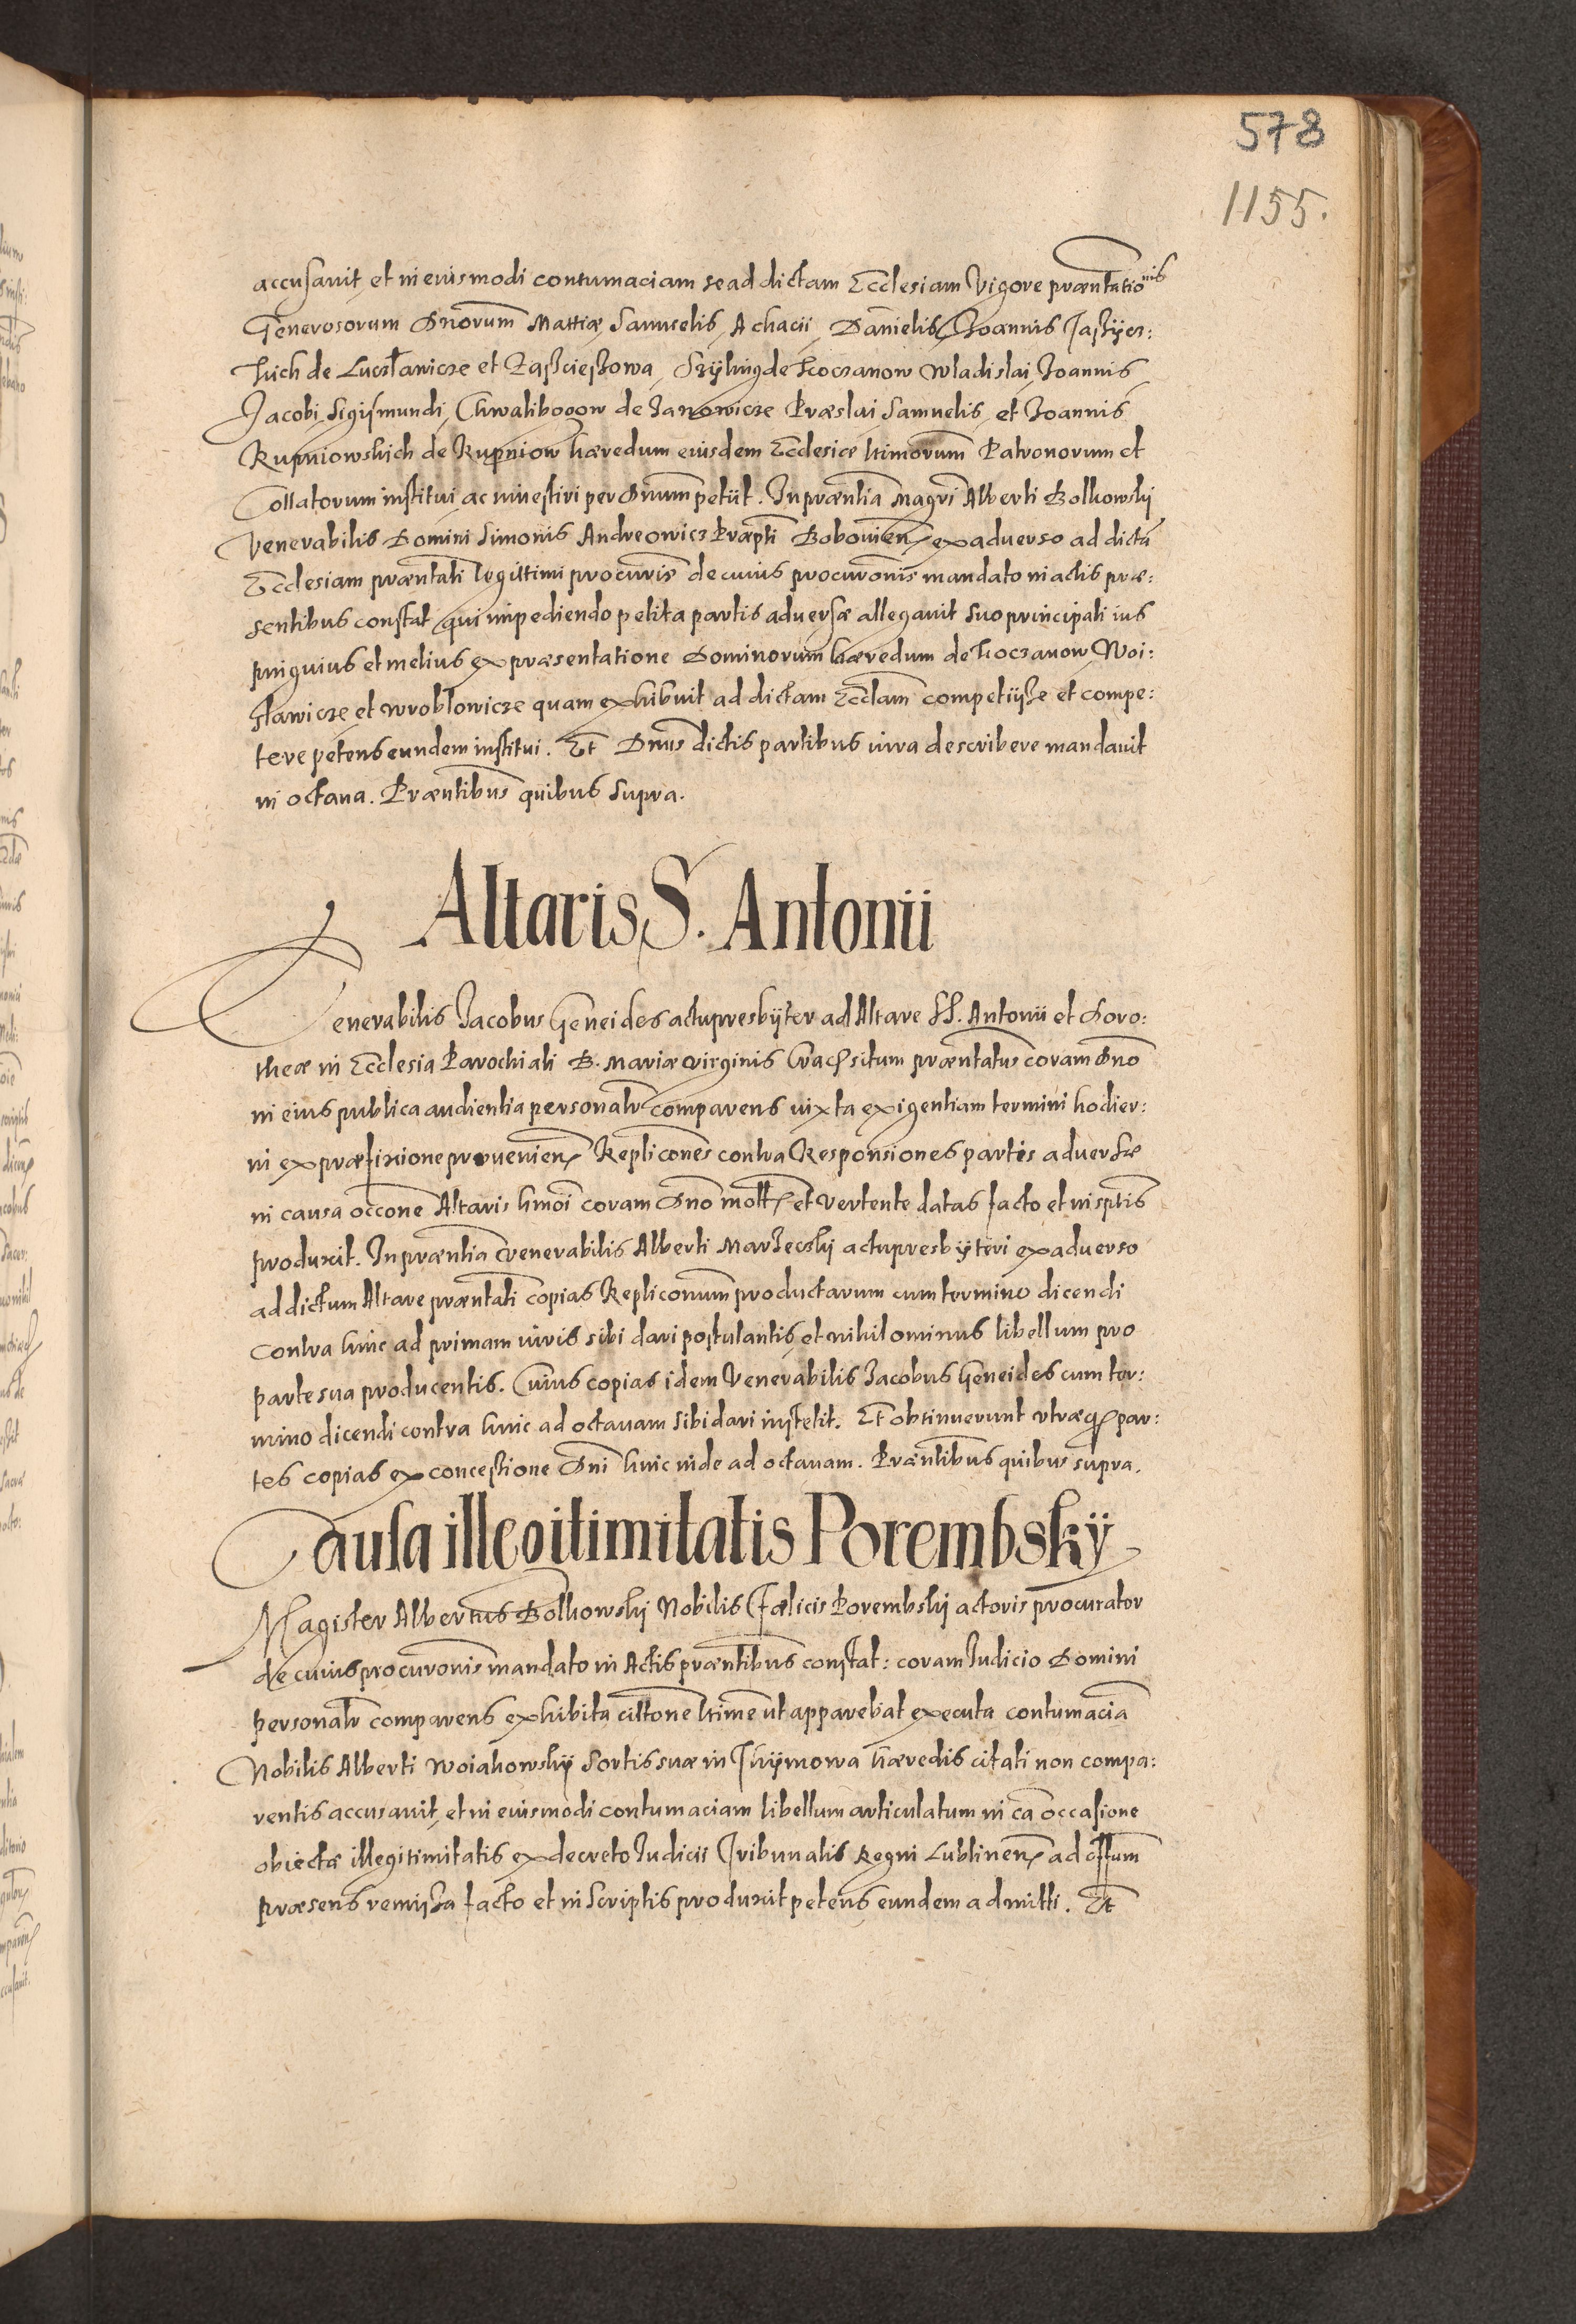 578
1155.
accusavit, et in eiusmodi contumaciam se ad dictam Ecclesiam vigore præntationis
Generosorum Dnorum Mattiæ, Samuelis, Achacii, Danielis, Joannis
de Lucslawicze et de Wladislai, Joannis,
Jacobi, Sigismundi, Chwalibogow de Janowicze Præslai Samuelis, et Joannis
Rupniowskich de Rupniow hæredum eiusdem Ecclesiæ ltimorum Patronorum et
Collatorum institui, ac investiri per Dnum petiit. In præntia Magri Alberti Bolkowsky
Venerabilis Domini Simonis Andreowicz Præpti Bobovien ex adverso ad dictã
Ecclesiam præntati legittimi procuris de cuius procuronis mandato in actis præ:
sentibus constat, qui impediendo petita partis adversæ allegavit suo principali ius
pinguius et melius ex præsentatione Dominorum hæredum de Woi:
slawicze et Wroblowicze quam exhibuit ad dictam Ecclam competiisse et compe:
tere petens eundem institui. Et Dnus dictis partibus iura describere mandavit
in octava. Præntibus quibus supra.
Altaris S. Antonii
Venerabilis Jacobus Geneides actupresbyter ad Altare SS. Antonii et Doro:
theæ in Ecclesia Parochiali B. Mariæ Virginis Crac situm præntatus coram Dno
in eius publica audientia personalr comparens iuxta exigentiam termini hodier:
ni ex præfixione provenien Replicones contra Responsiones partis adversæ
in causa occone Altaris hmoi coram Dno mott et vertente datas facto et in sptis
produxit. In præntia Venerabilis Alberti Marzecsky actupresbyteri ex adverso
ad dictum Altare præntati copias Repliconum productarum cum termino dicendi
contra hinc ad primam iuris sibi dari postulantis, et nihilominus libellum pro
parte sua producentis. Cuius copias idem Venerabilis Jacobus Geneides cum ter:
mino dicendi contra hinc ad octavam sibi dari institit. Et obtinuerunt utræq par:
tes copias ex concessione Dni hinc inde ad octavam. Præntibus quibus supra.
Causa illegitimitatis Porembsky
Magister Albertus Bolkowsky Nobilis Fælicis Porembsky actoris procurator
de cuius procuronis mandato in Actis præntibus constat: coram Judicio Domini
personalr comparens exhibita cittone ltime ut apparebat executa contumacia
Nobilis Alberti Woiakowsky sortis suæ in hæredis citati non compa:
rentis accusavit, et in eiusmodi contumaciam libellum articulatum in cã occasione
obiectæ illegitimitatis ex decreto Judicii Tribunalis Regni Lublinen ad
præsens remissa facto et in scriptis produxit petens eundem admitti. Et